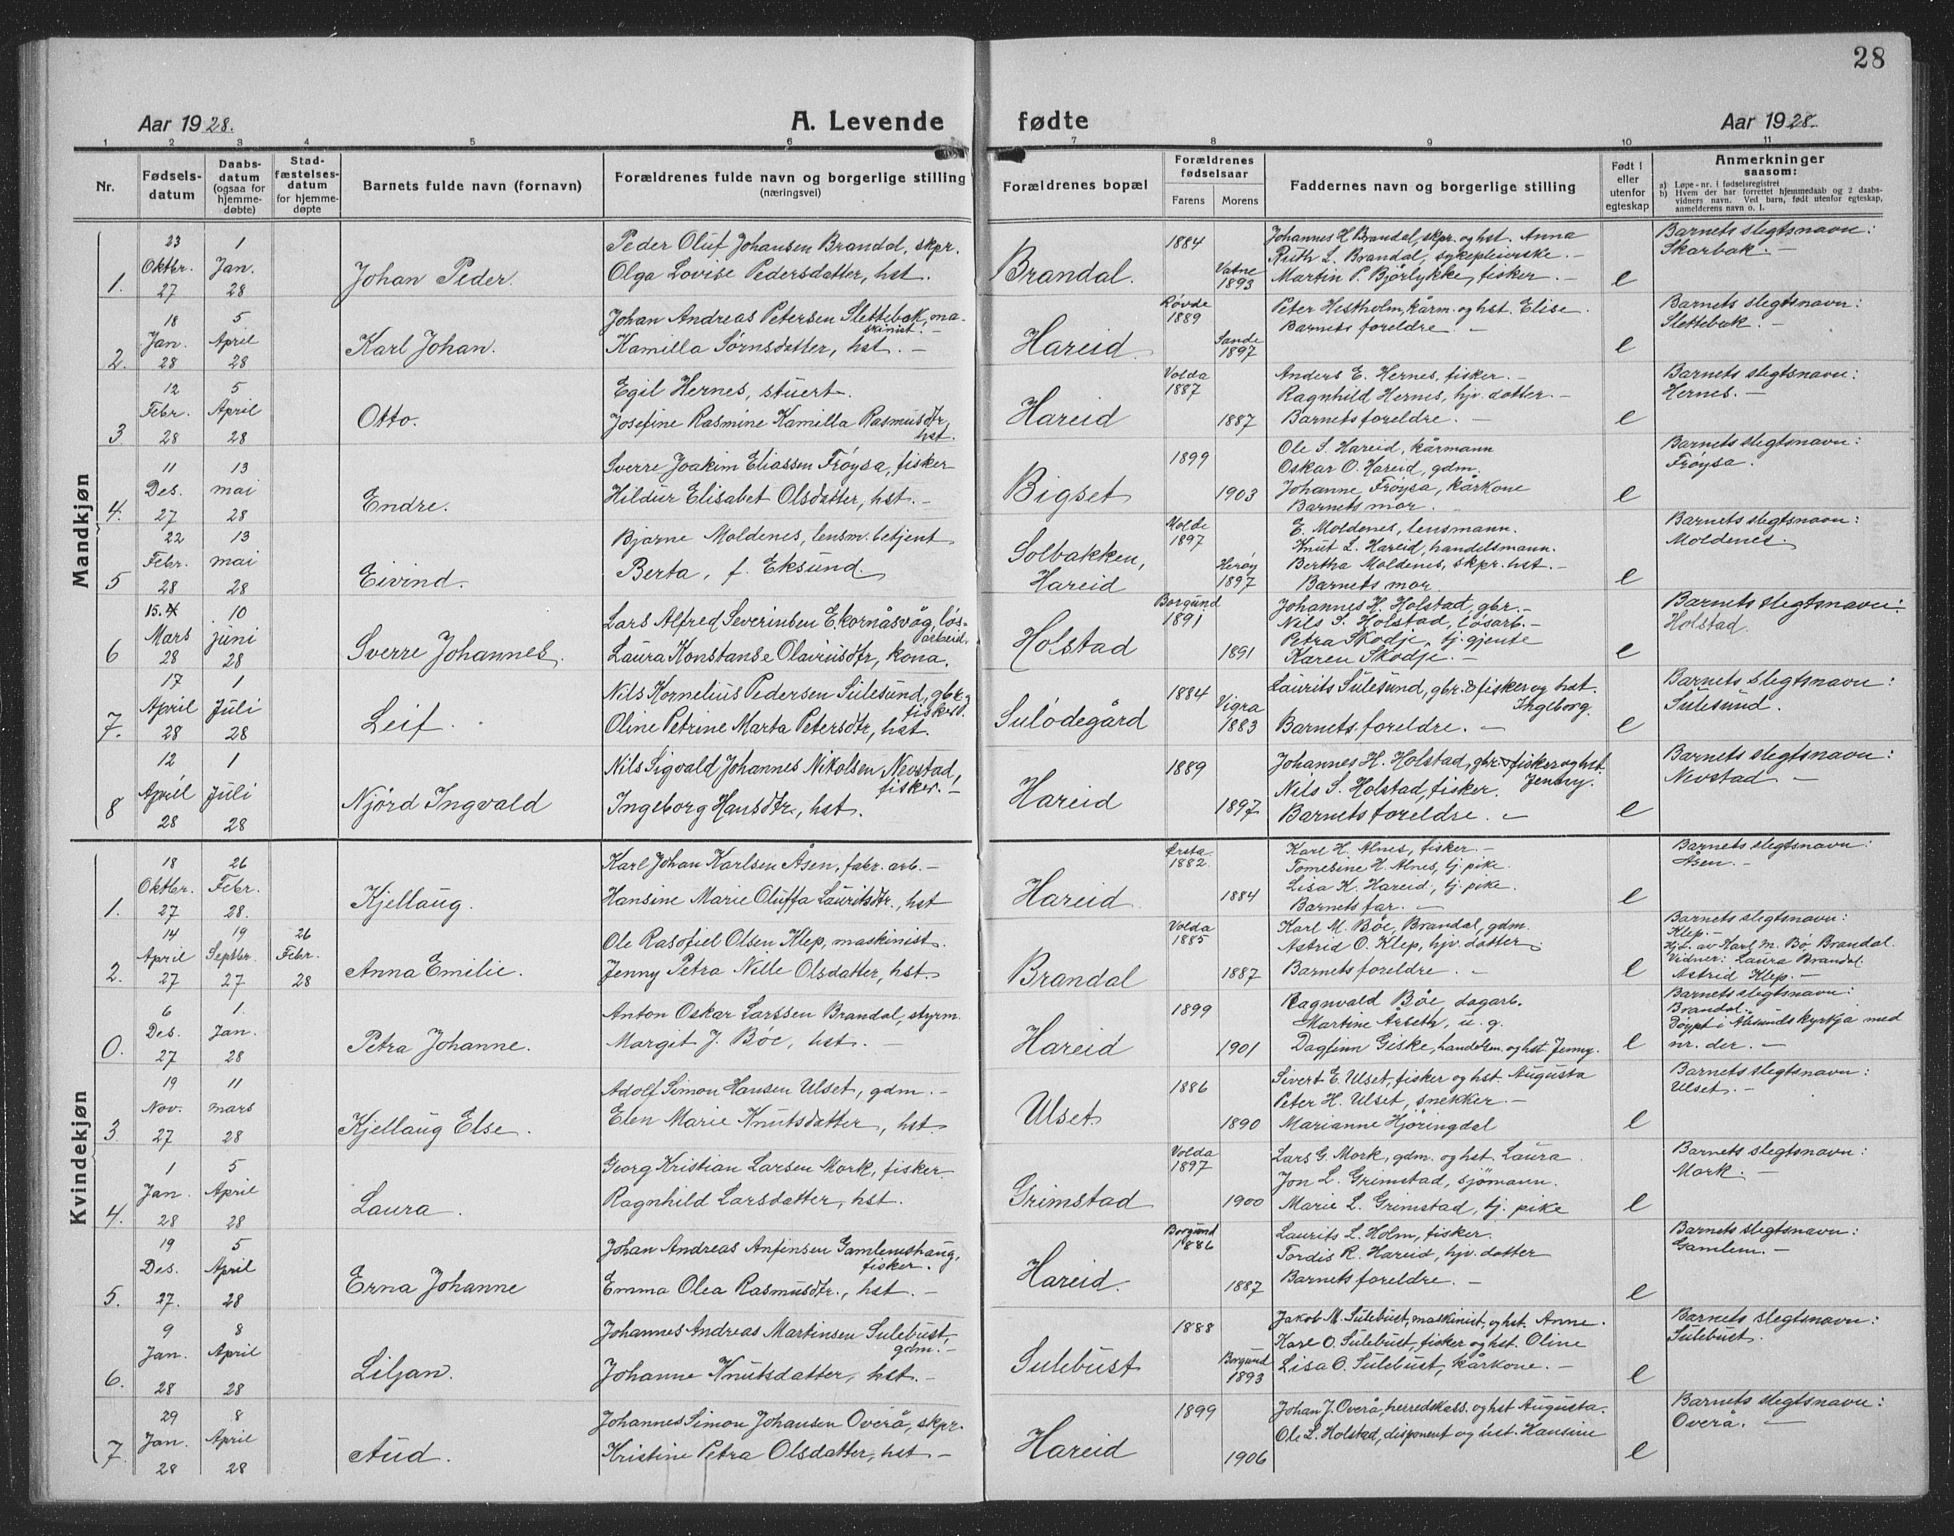 28
Aar 1928. A. Levende fødte Aar 1928.
1 2 3 4 5 6 7 8 9 10 11
Nr. Fødsels-datum Daabs-datum (ogsaa for hjemme-døbte) Stad-fæstelses-datum for hjemme-døpte Barnets fulde navn (fornavn) Forældrenes fulde navn og borgerlige stilling (næringsvei) Forældrenes bopæl Forældrenes fødselsaar Farens Morens Faddernes navn og borgerlige stilling Født i eller utenfor egteskap Anmerkninger saasom:
a) Løpe-nr. i fødselsregistret
b) Hvem der har forrettet hjemmedaab og 2 daabs-vidners navn. Ved barn, født utenfor egteskap, anmelderens navn o. l.
Mandkjøn
1. 23 Oktbr. 27 1 Jan. 28 Johan Peder.
Peder Oluf Johansen Brandal, skpr.
Olga Lovise Pedersdatter, hst.
Brandal. 1884 Vatne 1893
Johannes H. Brandal, skpr. og hst. Anna
Ruth L. Brandal, sykepleierske. —
Martin P. Bjørlykke, fisker. —
e Barnets slegtsnavn:
Skarbak. —
2. 18 Jan. 28 5 April 28 Karl Johan.
Johan Andreas Petersen Slettebak, ma-
skinist. —
Kamilla Sørnsdatter, hst. —
Hareid. Røvde 1889 Sande 1897
Peter Hestholm, kårm. og hst. Elise.
Barnets foreldre. —
e Barnets slegtsnavn:
Slettebak. —
3 12 Febr. 28 5 April 28 Otto.
Egil Hernes, stuert.
Josefine Rasmine Kamilla Rasmusdtr,
hst.
Hareid Volda 1887 1887
Anders E. Hernes, fisker. —
Ragnhild Hernes, hjv. datter. —
Barnets foreldre. —
e Barnets slegtsnavn:
Hernes. —
4. 11 Des. 27 13 mai 28 Endre.
Sverre Joakim Eliassen Frøysa, fisker
Hildur Elisabet Olsdatter, hst. —
Bigset 1899 1903
Ole S. Hareid, kårmann
Oskar O. Hareid, gdm.
Johanne Frøysa, kårkone
Barnets mor. —
e Barnets slegtsnavn:
Frøysa.
5 22 Febr. 28 13 mai 28 Eivind.
Bjarne Moldenes, lensm. betjent
Berta, f. Eksund.
Solbakken, Hareid Molde 1897 Herøy 1897
E. Moldenes, lensmann.
Knut L. Hareid, handelsmann.
Bertha Moldenes, skpr. hst. —
Barnets mor
e Barnets slegtsnavn:
Moldenes.
6 15. Mars 28 10 juni 28 Sverre Johannes.
Lars Alfred Severinsen Ekornåsvåg, løs-
arbeid.
Laura Konstanse Olaviusdtr, kona.
Holstad Borgund 1891 1891
Johannes H. Holstad, gbr. —
Nils S. Holstad, løsarb. —
Petra Skodje, tj. gjente
Karen Skodje. —
e Barnets slegtsnavn:
Holstad.
7. 17 April 28 1 Juli 28 Leif.
Nils Kornelius Pedersen Sulesund, gbr. &
fisker.
Oline Petrine Marta Petersdtr, hst.
Sulødegård 1884 Vigra 1883
Laurits Sulesund, gbr. & fisker og hst.
Ingeborg.
Barnets foreldre. —
e Barnets slegtsnavn:
Sulesund.
8 12 April 28 1 Juli 28 Njörd Ingvald
Nils Sigvald Johannes Nikolsen Nevstad,
fisker. —
Ingeborg Hansdtr., hst.
Hareid 1889 1897
Johannes H. Holstad, gbr. & fisker og hst.
Nils S. Holstad, fisker. Jenny.
Barnets foreldre. —
e Barnets slegtsnavn:
Nevstad —
Kvindekjøn
1. 18 Oktbr. 27 26 Febr. 28. Kjellaug.
Karl Johan Karlsen Åsen, fabr. arb. —
Hansine Marie Oluffa Lauritsdtr., hst
Hareid. Ørsta 1882 1884
Karl H. Alnes, fisker. —
Tomesine H. Alnes, tj. pike
Lisa K. Hareid, tj. pike.
Barnets far. —
e Barnets slegtsnavn:
Åsen. —
2. 14 April 27 19 Septbr. 27 26 Febr. 28 Anna Emilie.
Ole Rasofiel Olsen Klep, maskinist.
Jenny Petra Nille Olsdatter, hst
Brandal Volda 1885 1887
Karl M. Böe, Brandal, gdm.
Astrid O. Klep, hjv. datter.
Barnets foreldre. —
e Barnets slegtsnavn:
Klep. —
Hjd. av Karl M. Bø Brandal.
Vidner: Laura Brandal.
Astrid Klep. —
0. 6 Des. 27 1. Jan. 28 Petra Johanne.
Anton Oskar Larssen Brandal, styrm.
Margit J. Böe, hst. —
Hareid 1899 1901
Ragnvald Böe, dagarb.
Martine Arseth, u. g.
Dagfinn Giske, handelsm. og hst Jenny.
e Barnets slegtsnavn:
Brandal.
Døypt i Ålesunds kyrkja med
nr. der. —
3 19 Nov. 27 11 mars 28 Kjellaug Else.
Adolf Simon Hansen Ulset, gdm. —
Elen Marie Knutsdatter, hst
Ulset 1886 1890
Sivert E. Ulset, fisker og hst. Augusta
Peter H. Ulset, snekker. —
Marianne Hjöringdal
e Barnets slegtsnavn:
Ulset. —
4. 1 Jan. 28 5 April 28 Laura.
Georg Kristian Larsen Mork, fisker.
Ragnhild Larsdatter, hst.
Grimstad Volda 1897 1900
Lars G. Mork, gdm. og hst. Laura.
Jon L. Grimstad, sjömann.
Marie L. Grimstad, tj. pike
e Barnets slegtsnavn:
Mork. —
5. 19 Des. 27. 5 April 28 Erna Johanne
Johan Andreas Anfinsen Gamlemshaug,
fisker.
Emma Olea Rasmusdtr., hst. —
Hareid. Borgund 1886 1887
Laurits L. Holm, fisker.
Tordis R. Hareid, hjv. datter
Barnets foreldre. —
e Barnets slegtsnavn:
Gamlem. —
6. 9 Jan. 28 8 April 28 Liljan.
Johannes Andreas Martinsen Sulebust,
gdm. —
Johanne Knutsdatter, hst. —
Sulebust 1888 Borgund 1893
Jakob M. Sulebust, maskinist, og hst. Anne.
Karl O. Sulebust, fisker og hst. Oline
Lisa O. Sulebust, kårkone. —
e Barnets slegtsnavn:
Sulebust.
7. 29 Jan. 28 8 April 28 Aud.
Johannes Simon Johansen Overå, skpr.
Kristine Petra Olsdatter, hst —
Hareid 1899 1906
Johan J. Overå, herredskass. og hst Augusta.
Ole L. Holstad, disponent og hst. Hansine
e Barnets slegtsnavn:
Overå. —